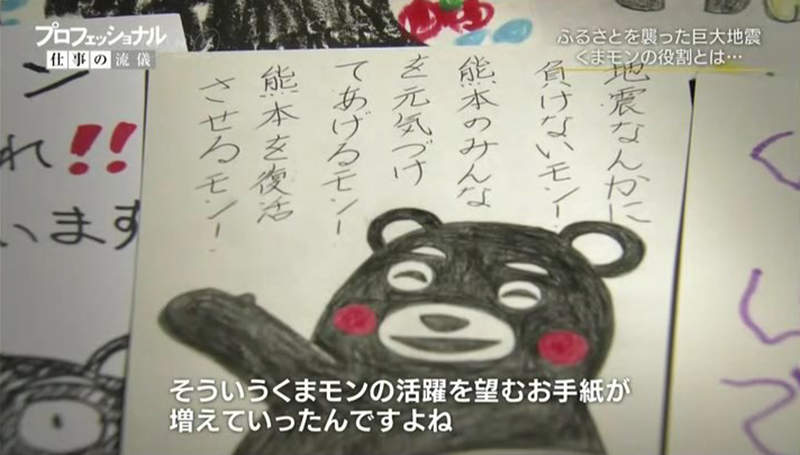 プロフェッショナル
仕事の流儀
ふるさとを襲った巨大地震
くまモンの役割とは…
地震なんかに
負けないモン!
熊本のみんな
を元気づけ
てあげるモンー
熊本を復活
させるモン!
ン
れ!!
います
そういうくまモンの活躍を望むお手紙が
増えていったんですよね